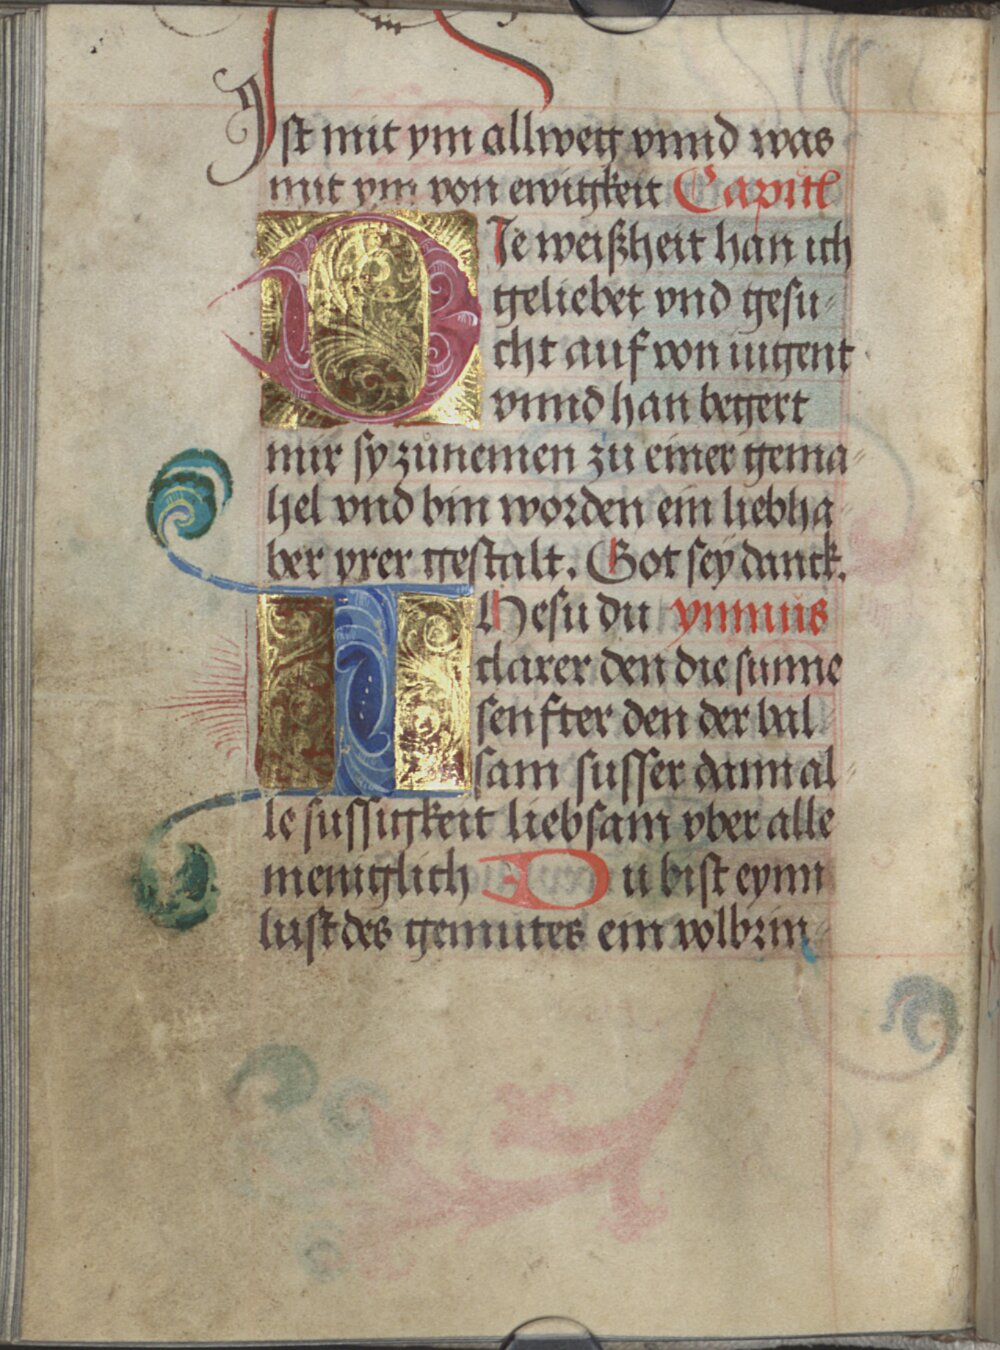 Ist mit ym allweg vnnd was
mit ym von ewigkeit Capitl
DIe weißheit han ich
geliebet vnd gesu-
cht auf von iugent
vnnd han begert
mir sy zůnemen zu einer gema-
hel vnd bin worden ein liebha-
ber yrer gestalt. Got sey danck.
IHesu du ymnus
clarer den die sunne
senfter den der bal
sam susser dann al-
le sussigkeit liebsam vber alle
meniglich Du bist eynn
lust des gemutes ein volbrin-